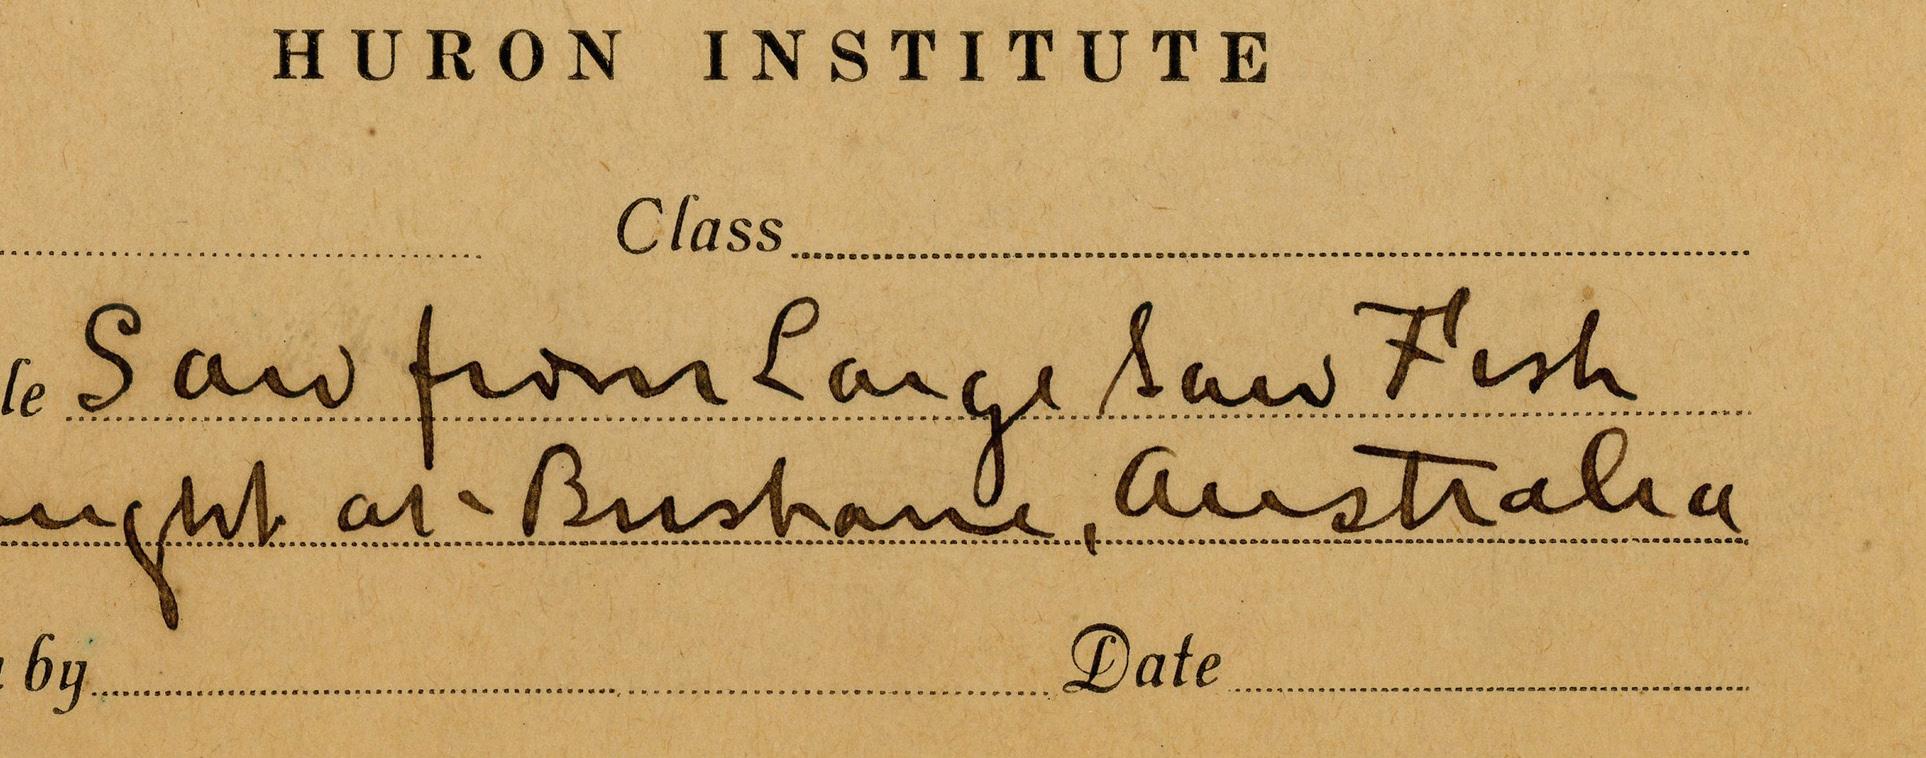 HURON INSTITUTE
Class
le Saw from Large Saw Fish
aught at Brisbane, Australia
by Date